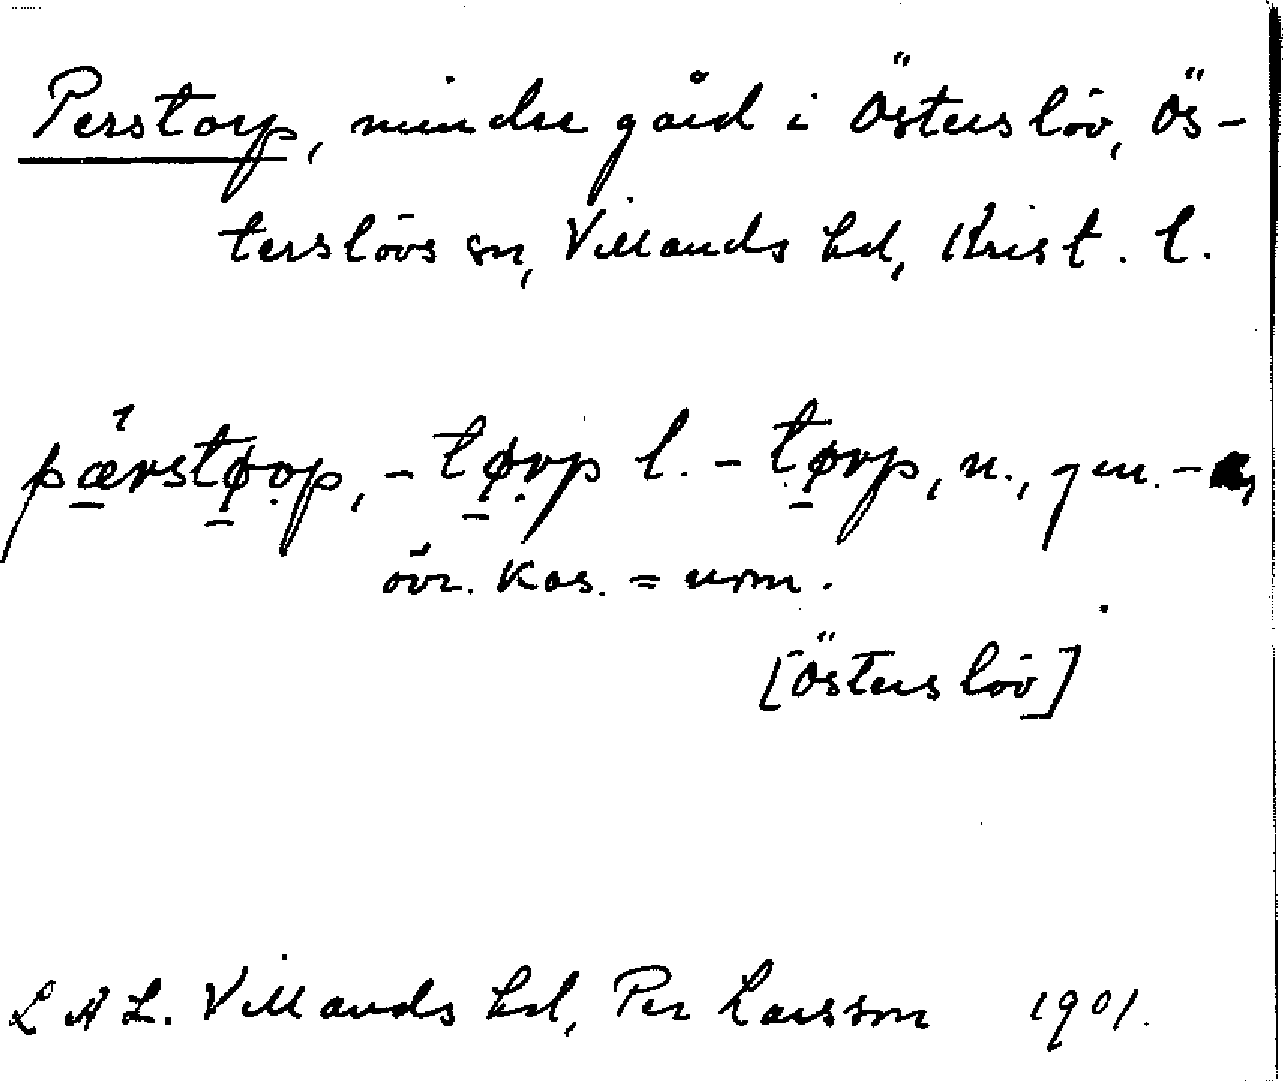 Perstorp, mindre gård i Österslöv, Ös-
terslövs sn, Villands hd, Krist. l.
pærstøop, -tørp l. -tørp, n., gen. -a,
övr. kas. = nom.
[Österslöv]
L A L. Villands hd, Per Larsson 1901.